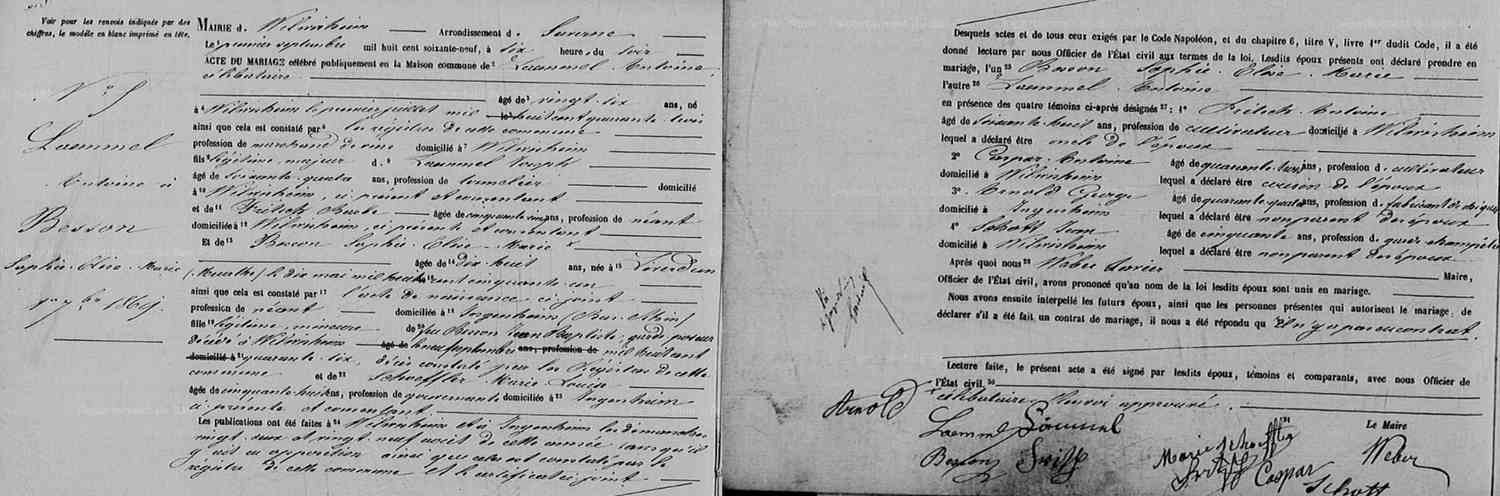 Voir pour les renvois indiqués par des
chiffres, le modèle en blanc imprimé en tête.
N° 5
Laemmel
Antoine à
Besson
Sophie Elise Marie
1er 7bre 1869.
MAIRIE d. Wilwisheim Arrondissement d. Saverne
Le premier septembre mil huit cent soixante-neuf, à six heures du soir
ACTE DU MARIAGE célébré publiquement en la Maison commune de² Laemmel Antoine
célibataire
âgé de³ vingt-six ans, né
à⁴ Wilwisheim le premier juillet mil huit cent quarante trois
ainsi que cela est constaté par⁵ les registres de cette commune
profession de marchand de vins domicilié à⁷ Wilwisheim
fils⁸ légitime majeur d.⁹ Laemmel Joseph
âgé de soixante-quatre ans, profession de tonnelier domicilié
à¹⁰ Wilwisheim, ci présent et consentant
et de¹¹ Fritsch Barbe âgée de cinquante ans, profession de néant
domiciliée à¹² Wilwisheim, ci présente et consentant
Et de¹³ Besson Sophie Elise Marie
âgée de¹⁴ dix-huit ans, née à¹⁵ Liverdun
(Meurthe) le dix mai mil huit cent cinquante un
ainsi que cela est constaté par¹⁷ l'acte de naissance ci joint
profession de néant domiciliée à¹⁸ Ingenheim (Bas-Rhin)
fille¹⁹ légitime mineure de²⁰ feu Besson Jean Baptiste, garde poseur
décédé à Wilwisheim âgé de le neuf septembre ans, profession de mil huit cent
domicilié à²¹ quarante six, décès constaté par les Registres de cette
commune et de²² Schoeffler Marie Louise
âgée de cinquante huit ans, profession de gouvernante domiciliée à²³ Ingenheim
ci présente et consentant
Les publications ont été faites à²⁴ Wilwisheim et à Ingenheim les dimanches
vingt-deux et vingt-neuf août de cette année sans qu'il
y ait eu opposition ainsi que cela est constaté par le
registre de cette commune et le certificat ci joint
Desquels actes et de tous ceux exigés par le Code Napoléon, et du chapitre 6, titre V, livre 1er dudit Code, il a été
donné lecture par nous Officier de l'État civil aux termes de la loi. Lesdits époux présents ont déclaré prendre en
mariage, l'un²⁵ Besson Sophie Elise Marie
l'autre²⁶ Laemmel Antoine
en présence des quatre témoins ci-après désignés²⁷: 1° Fritsch Antoine
âgé de soixante huit ans, profession de cultivateur domicilié à Wilwisheim
lequel a déclaré être oncle de l'époux
2° Caspar Antoine âgé de quarante ans, profession d. cultivateur
domicilié à Wilwisheim lequel a déclaré être cousin de l'époux
3° Arnold George âgé de quarante quatre ans, profession d. fabricant de
domicilié à Ingenheim lequel a déclaré être non parent des époux
4° Schott Jean âgé de cinquante ans, profession d. garde champêtre
domicilié à Wilwisheim lequel a déclaré être non parent des époux
Après quoi nous²⁸ Weber Xavier Maire,
Officier de l'État civil, avons prononcé qu'au nom de la loi lesdits époux sont unis en mariage.
Nous avons ensuite interpellé les futurs époux, ainsi que les personnes présentes qui autorisent le mariage, de
déclarer s'il a été fait un contrat de mariage, il nous a été répondu qu'il n'y a pas eu contrat.
Lecture faite, le présent acte a été signé par lesdits époux, témoins et comparants, avec nous Officier de
l'État civil.³⁰
célibataire Renvoi approuvé.
Arnold
Laemmel Laemmel
Besson
Marie Schoeffler
Caspar
Schott
Le Maire
Weber